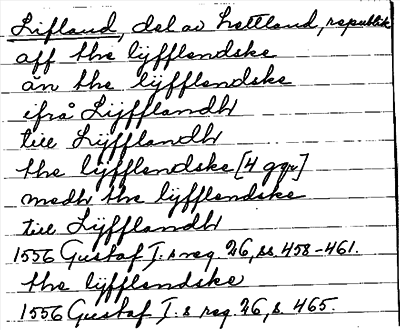 Lifland, del av Lettland, republik
aff the lÿfflendske
än the lÿfflendske
ifrå Lÿfflandh
till Lÿfflandh
the lÿfflendske [4 ggr]
medh the lÿfflendske
till Lÿfflandh
1556 Gustaf I.s reg. 26, ss. 458-461.
the lÿfflendske
1556 Gustaf I.s reg. 26, s. 465.